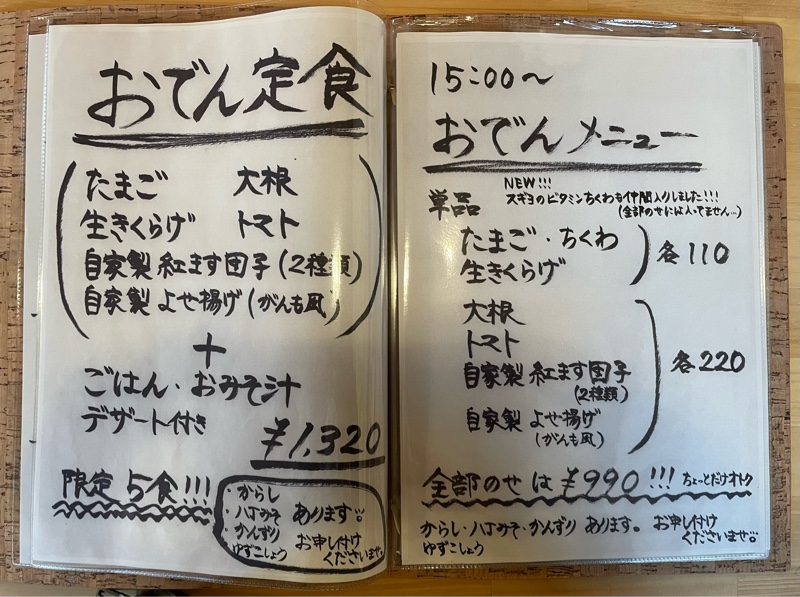 おでん定食
たまご　大根
生きくらげ　トマト
自家製 紅ます団子(2種類)
自家製 よせ揚げ(がんも風)
+
ごはん・おみそ汁
デザート付き
¥1,320
限定 5食!!!
・からし
・ハロみそ
・かんずり
ゆずこしょう
あります。
お申し付け
くださいませ。
15:00〜
おでんメニュー
NEW!!!
単品 スギヨのビタミンちくわも仲間入りしました!!!
(全部のせには入ってません…)
たまご・ちくわ
生きくらげ
各110
大根
トマト
自家製 紅ます団子
(2種類)
自家製 よせ揚げ
(がんも風)
各220
全部のせは¥990!!! ちょっとだけオトク
からし・ハロみそ・かんずり あります。 お申し付け
ゆずこしょう くださいませ。